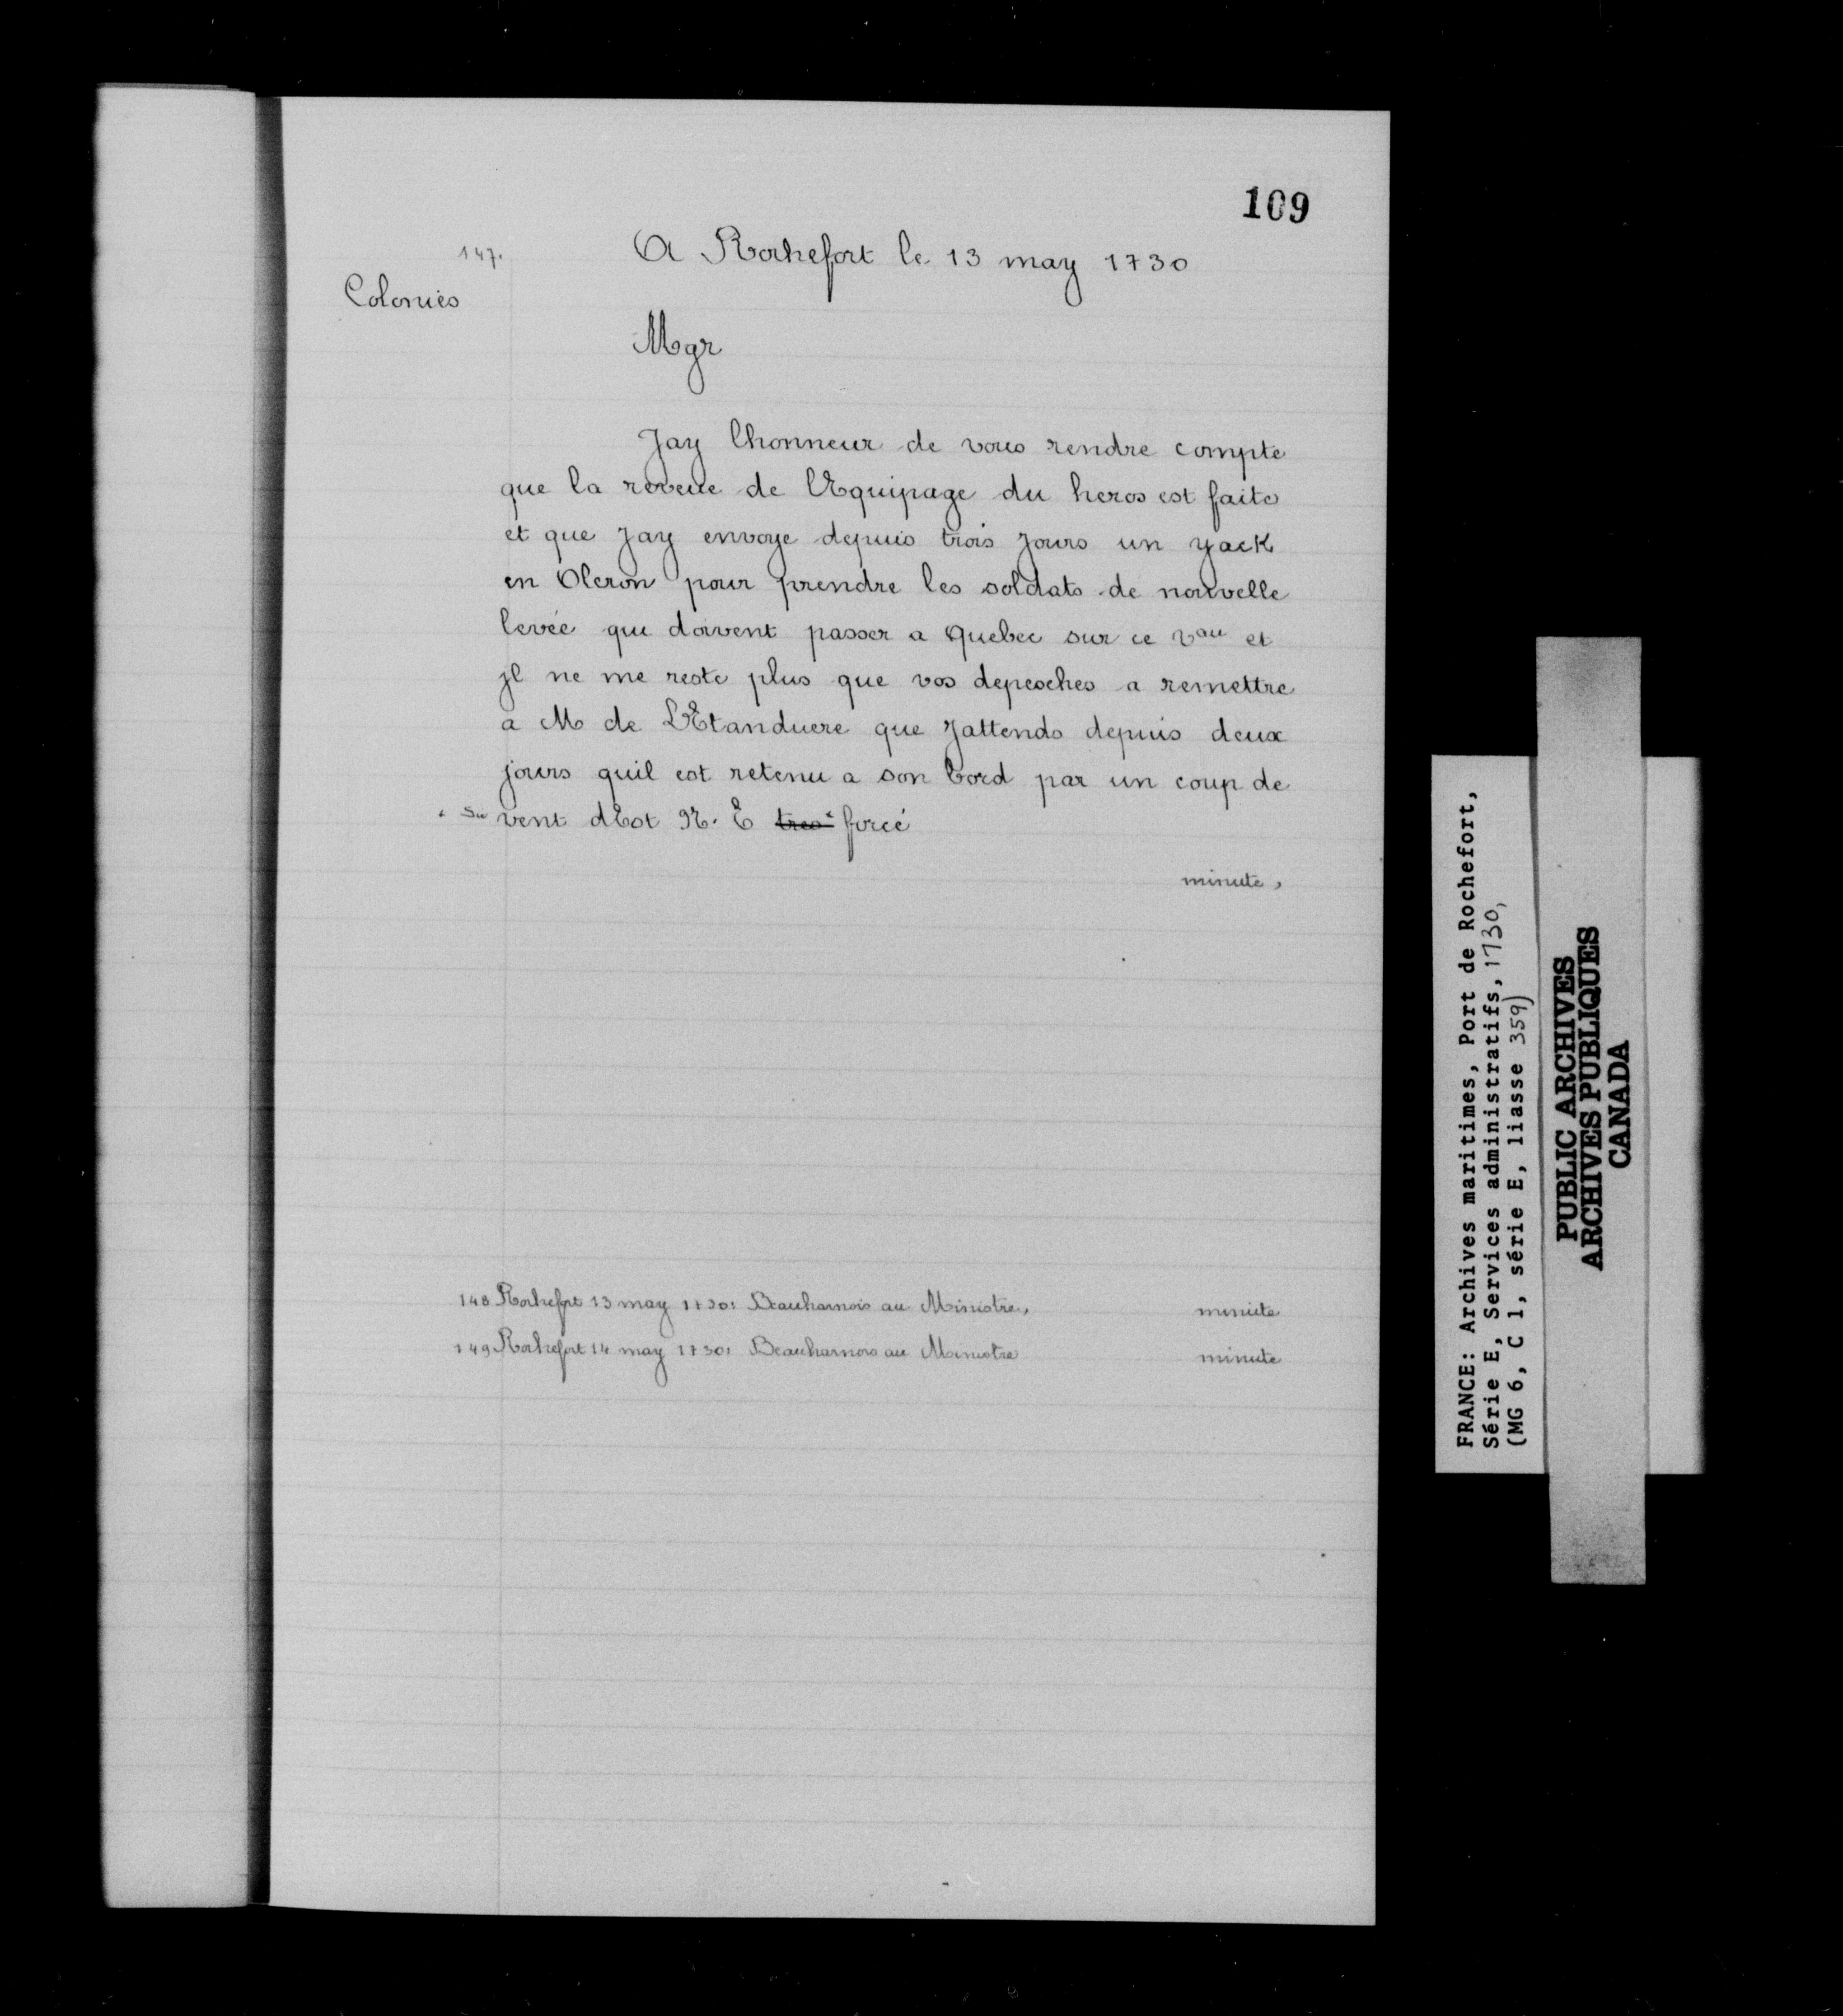 109
147.
A Rochefort le 13 may 1730
Colonies
Mgr
Jay lhonneur de vous rendre compte
que la reveue de lEquipage du heros est faite
et que Jay envoye depuis trois Jours un yack
en Oleron pour prendre les soldats de nouvelle
levée qui doivent passer a Quebec sur ce vau et
Jl ne me reste plus que vos depesches a remettre
a M de LEtanduere que Jattends depuis deux
jours quil est retenu a son bord par un coup de
vent dEst N. E tres forcé
minute,
148 Rochefort 13 may 1730: Beauharnois au Ministre, minute
149 Rochefort 14 may 1730: Beauharnois au Ministre minute
FRANCE: Archives maritimes, Port de Rochefort,
Série E, Services administratifs, 1730,
(MG 6, C 1, série E, liasse 359)
PUBLIC ARCHIVES
ARCHIVES PUBLIQUES
CANADA